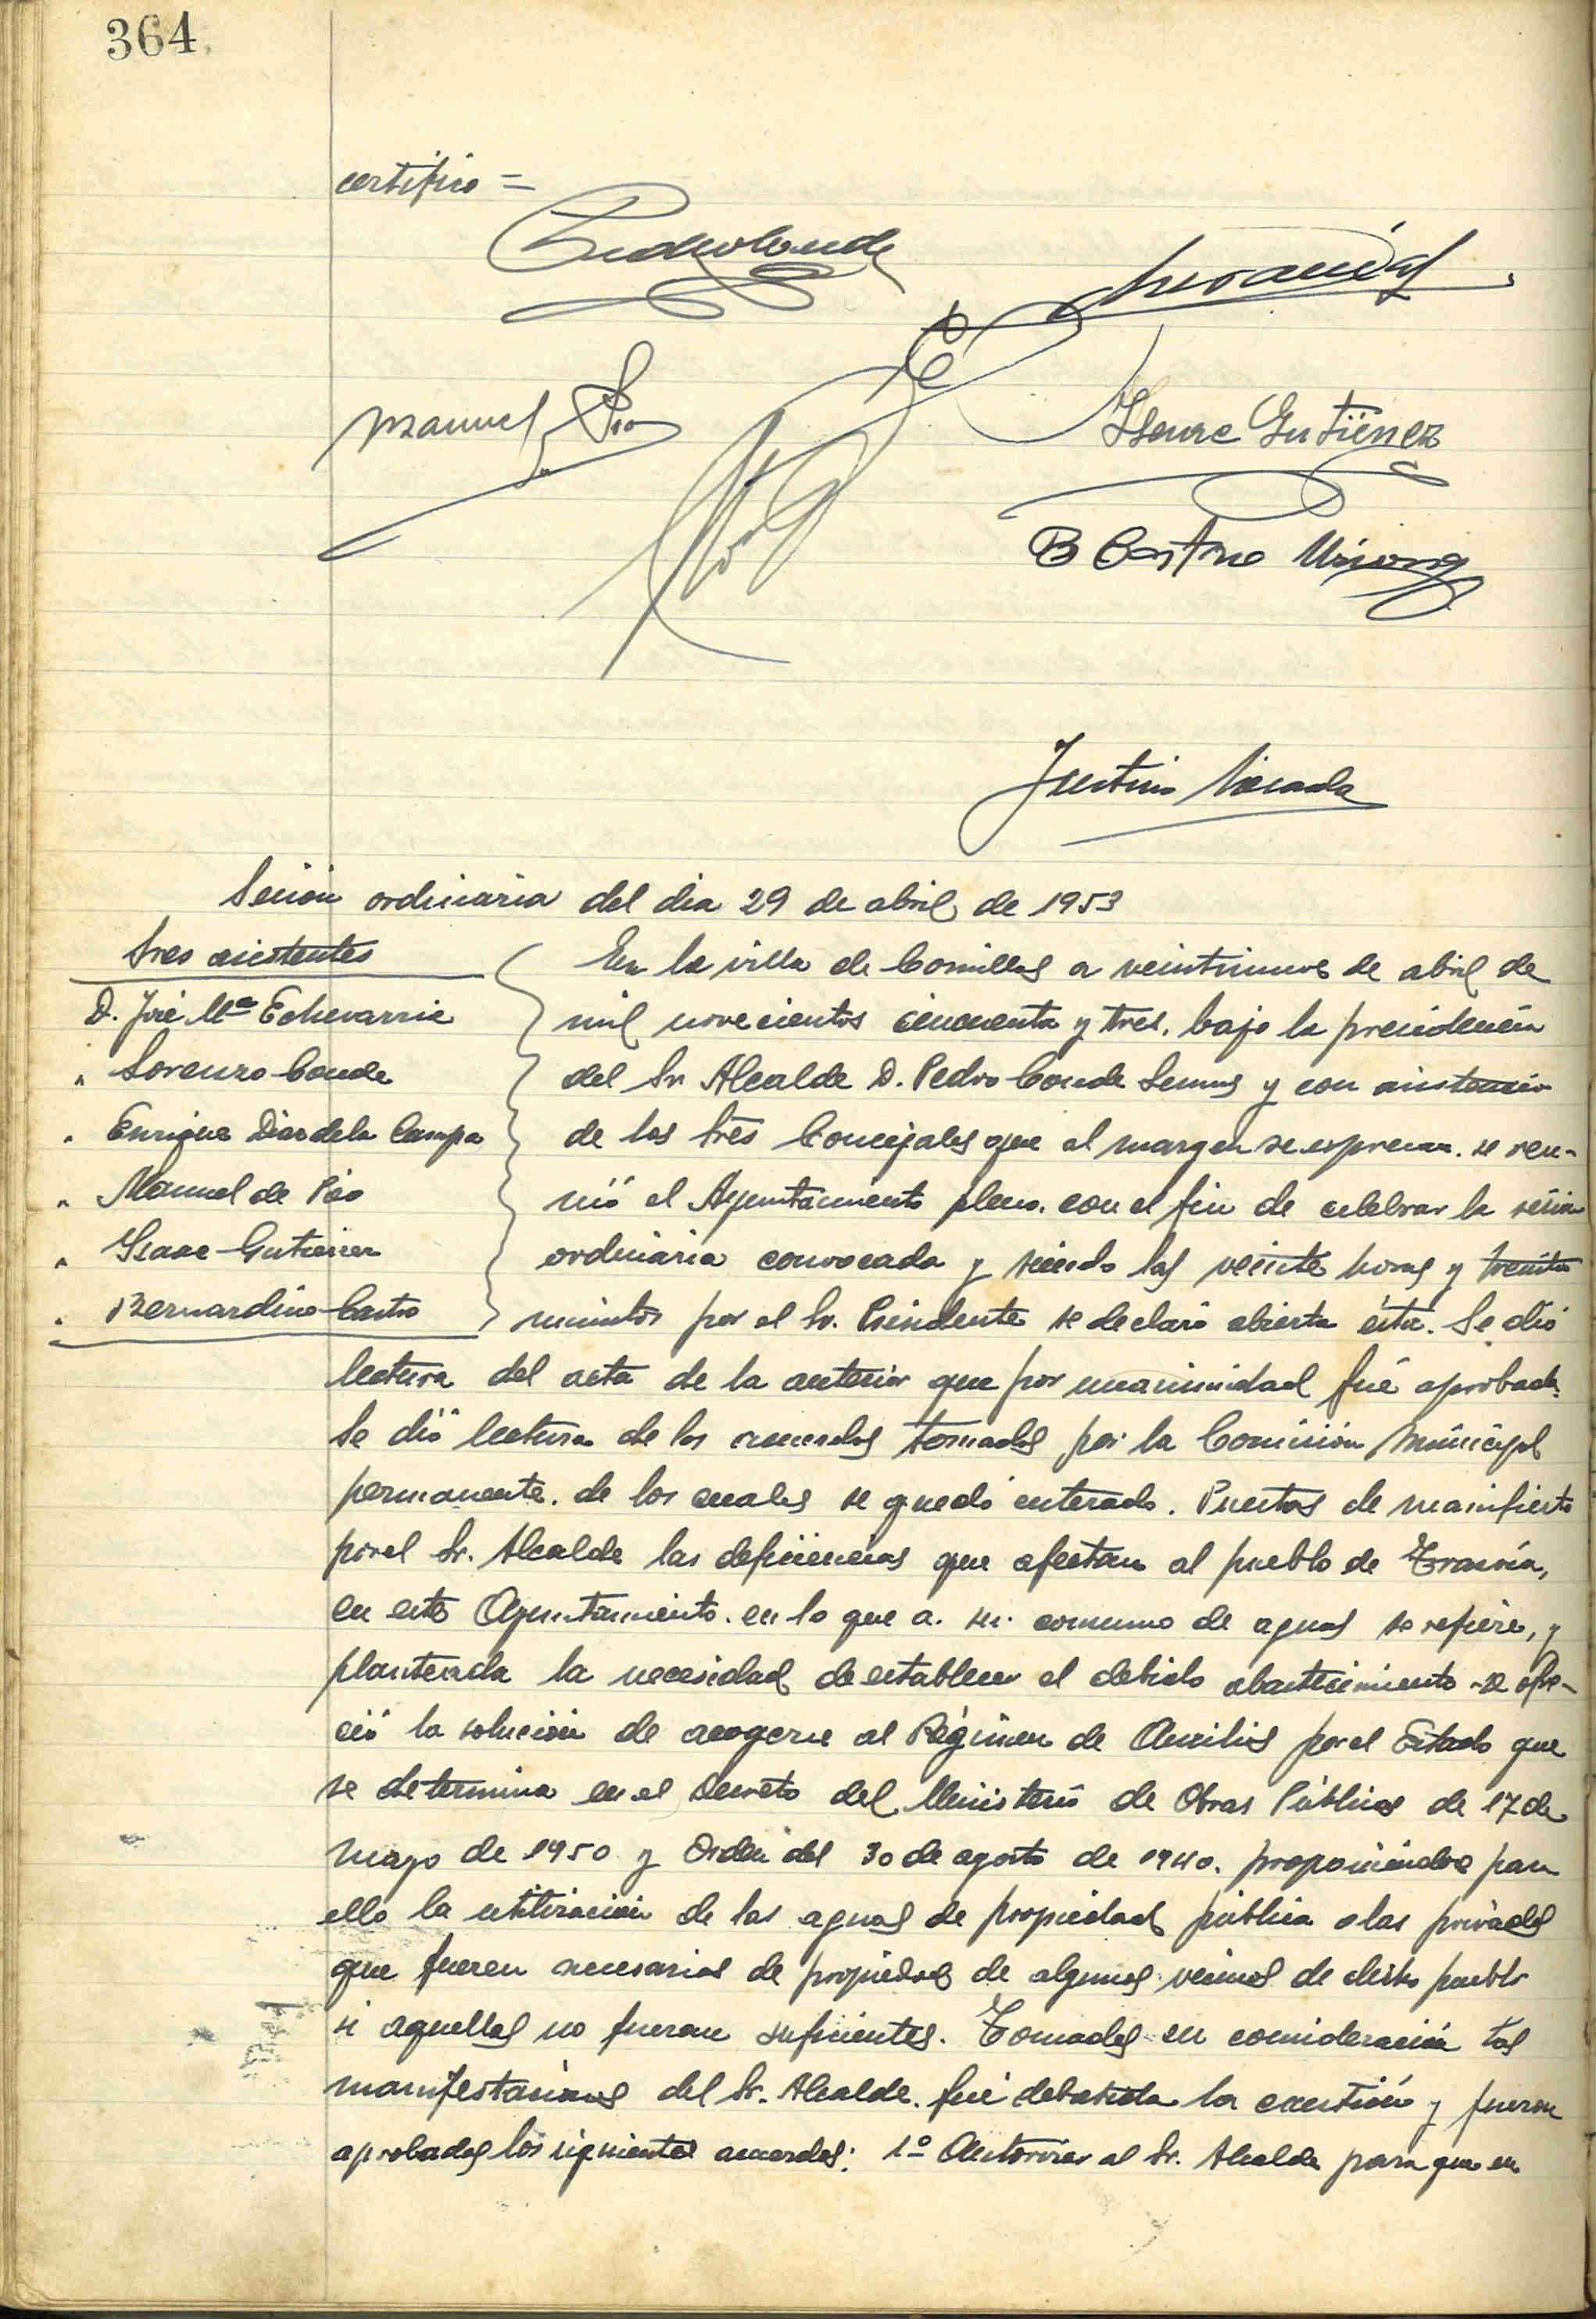 364
certifico =
Pedro Conde
Manuel Pío
Isaac Gutiérrez
B Castro
Sesión ordinaria del dia 29 de abril de 1953
Sres asistentes
D. José Mª Echevarria
" Lorenzo Conde
" Enrique Diaz de la Campa
" Manuel de Pío
" Isaac Gutierrez
" Bernardino Castro
En la villa de Comillas a veintinueve de abril de
mil novecientos cincuenta y tres, bajo la presidencia
del Sr Alcalde D. Pedro Conde y con asistencia
de los Sres Concejales que al margen se expresan, se reu-
nió el Ayuntamiento pleno, con el fin de celebrar la sesión
ordinaria convocada y siendo las veinte horas y treinta
minutos por el Sr. Presidente se declaró abierta ésta. Se dió
lectura del acta de la anterior que por unanimidad fué aprobada.
Se dió lectura de los acuerdos tomados por la Comisión Municipal
permanente, de los cuales se quedó enterado. Puestas de manifiesto
por el Sr. Alcalde las deficiencias que afectan al pueblo de Trasvía,
en este Ayuntamiento, en lo que a su consumo de aguas se refiere, y
planteada la necesidad de establecer el debido abastecimiento se ofre-
ció la solución de acogerse al Régimen de Auxilios por el Estado que
se determina en el Decreto del Ministerio de Obras Públicas de 17 de
mayo de 1950 y Orden del 30 de agosto de 1940, proponiéndose para
ello la utilización de las aguas de propiedad pública o las privadas
que fueren necesarias de propiedad de algunos vecinos de dicho pueblo
si aquellas no fueran suficientes. Tomadas en consideración las
manifestaciones del Sr. Alcalde, fué debatida la cuestión y fueron
aprobados los siguientes acuerdos: 1º Autorizar al Sr. Alcalde para que en